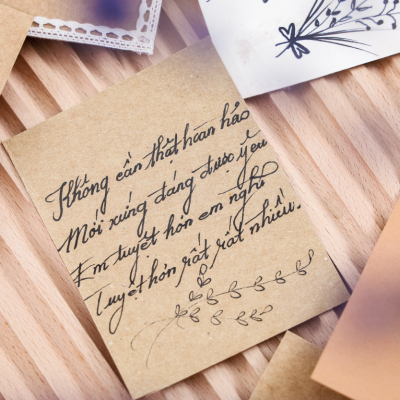 Không cần thật hoàn hảo
Mới xứng đáng được yêu
Em tuyệt hơn em nghĩ
Tuyệt hơn rất rất nhiều.